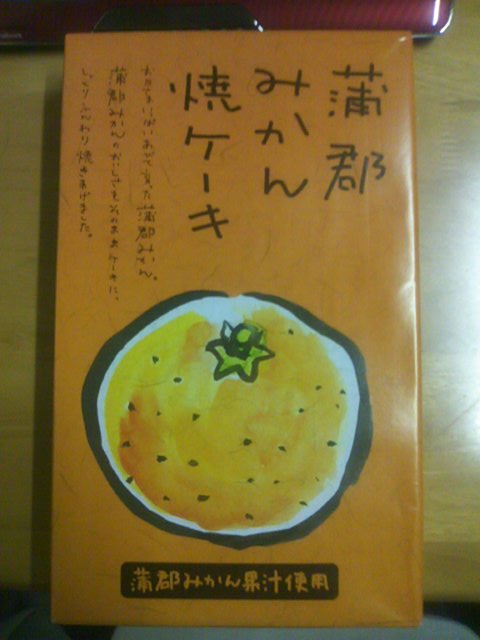 蒲郡
みかん
焼ケーキ
お日さまいっぱいあびて育った蒲郡みかん。
蒲郡みかんのおいしさをそのままケーキに、
しっとりふんわり焼きあげました。
蒲郡みかん果汁使用